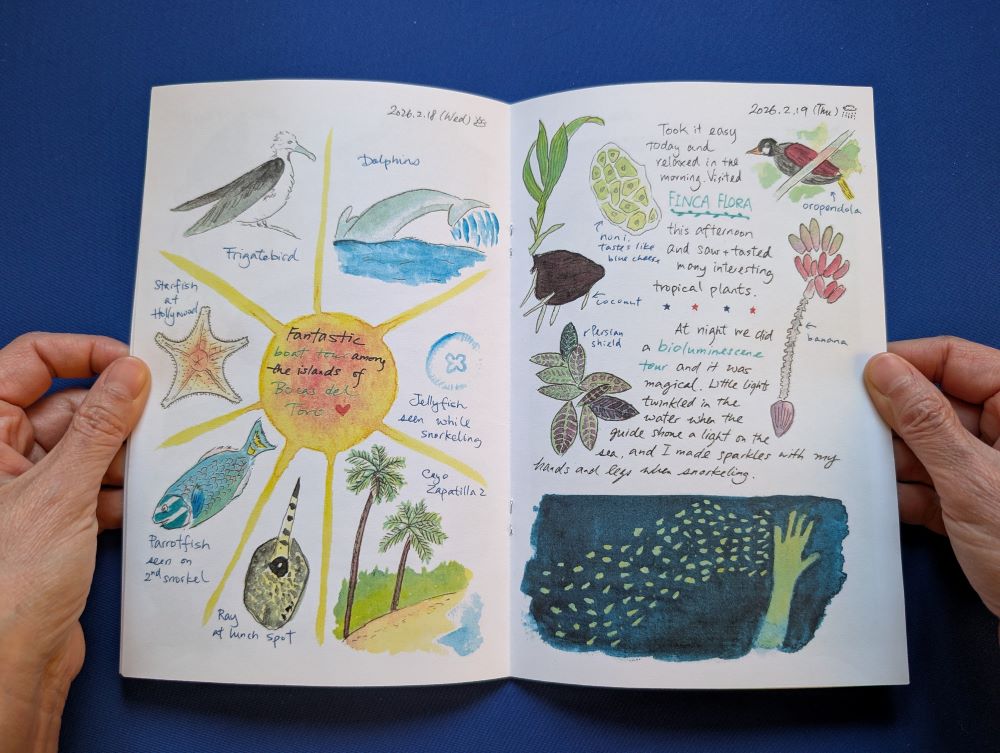 2026.2.18 (Wed)
Frigatebird
Dolphins
Starfish
at
Hollywood
Fantastic
boat tour among
the islands of
Bocas del
Toro
Jellyfish
seen while
snorkeling
Parrotfish
seen on
2nd snorkel
Ray
at lunch spot
Cayo
Zapatilla 2
2026.2.19 (Thu)
Took it easy
today and
relaxed in the
morning. Visited
FINCA FLORA
this afternoon
and saw + tasted
many interesting
tropical plants.
noni,
tastes like
blue cheese
coconut
oropendola
banana
Persian
shield
At night we did
a bioluminescene
tour and it was
magical. Little lights
twinkled in the
water when the
guide shone a light on the
sea, and I made sparkles with my
hands and legs when snorkeling.